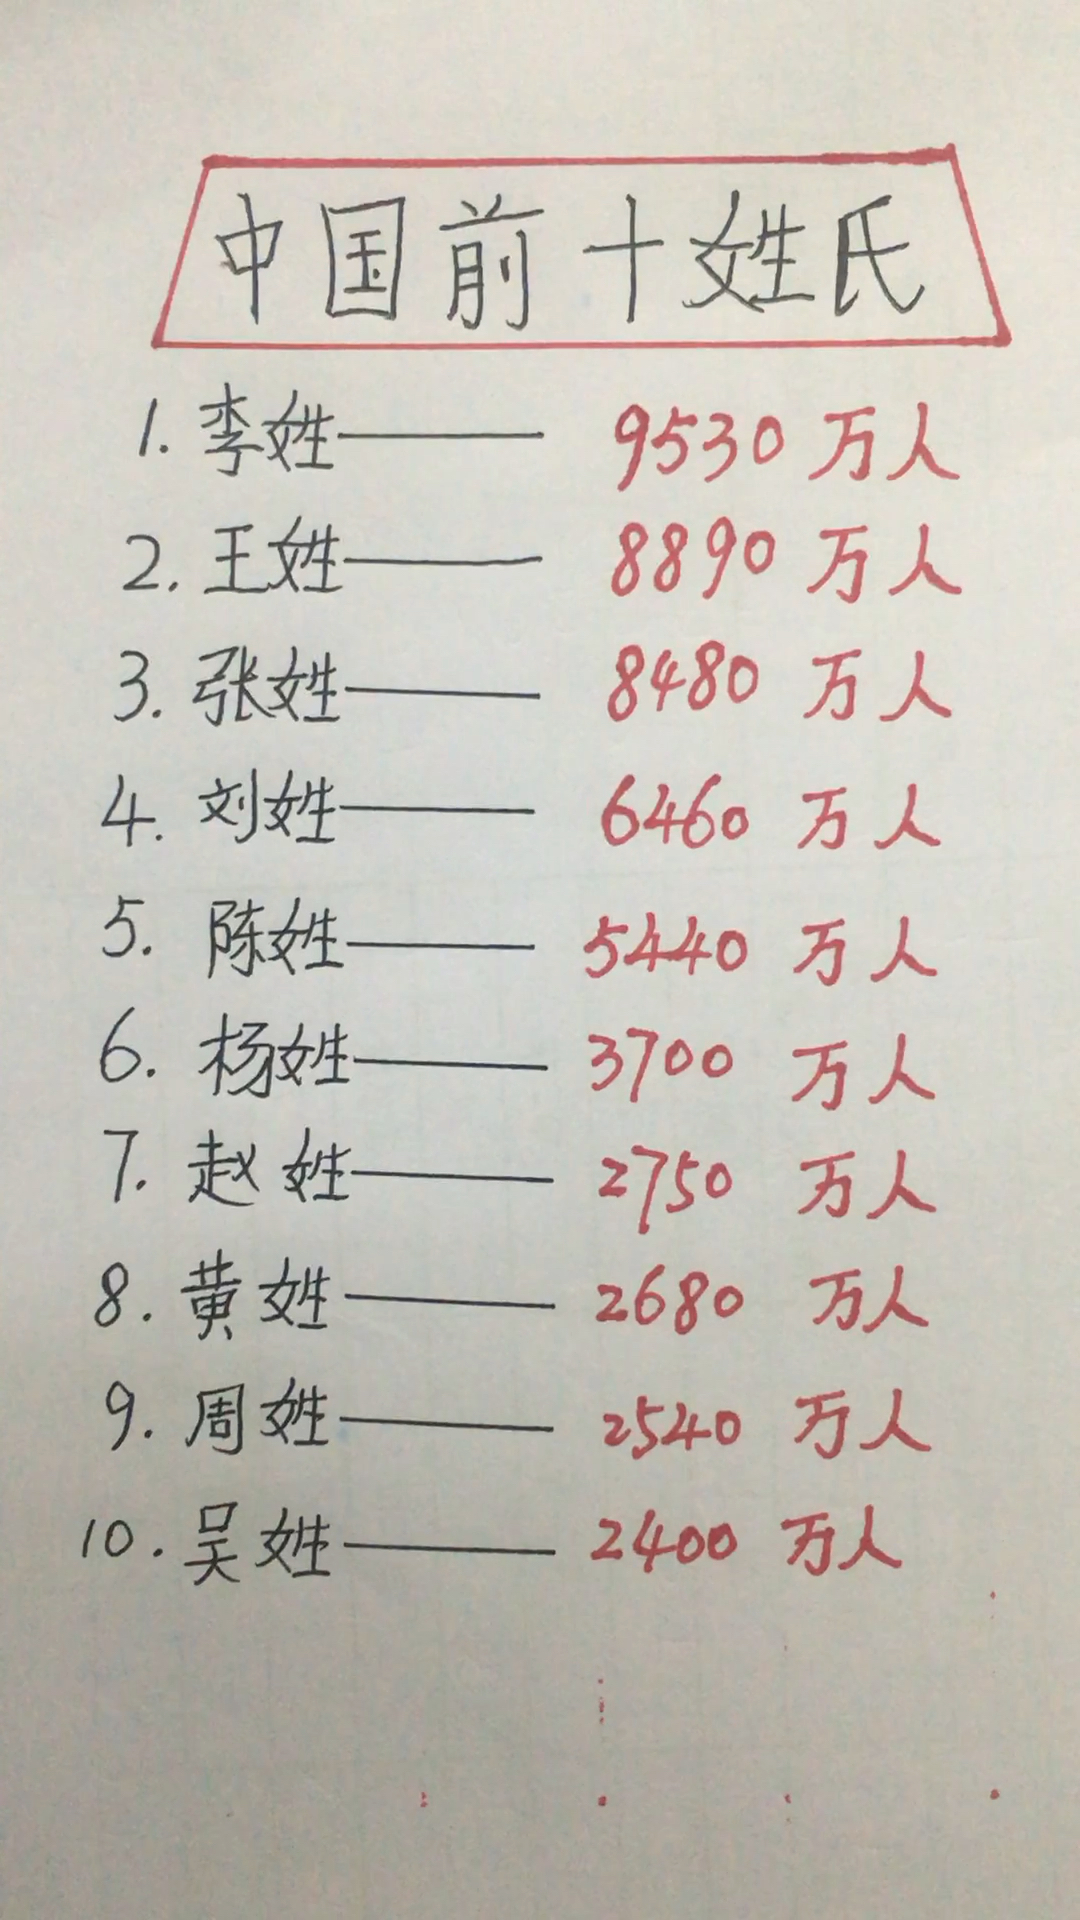 中国前十姓氏
1. 李姓——9530 万人
2. 王姓——8890 万人
3. 张姓——8480 万人
4. 刘姓——6460 万人
5. 陈姓——5440 万人
6. 杨姓——3700 万人
7. 赵姓——2750 万人
8. 黄姓——2680 万人
9. 周姓——2540 万人
10. 吴姓——2400 万人